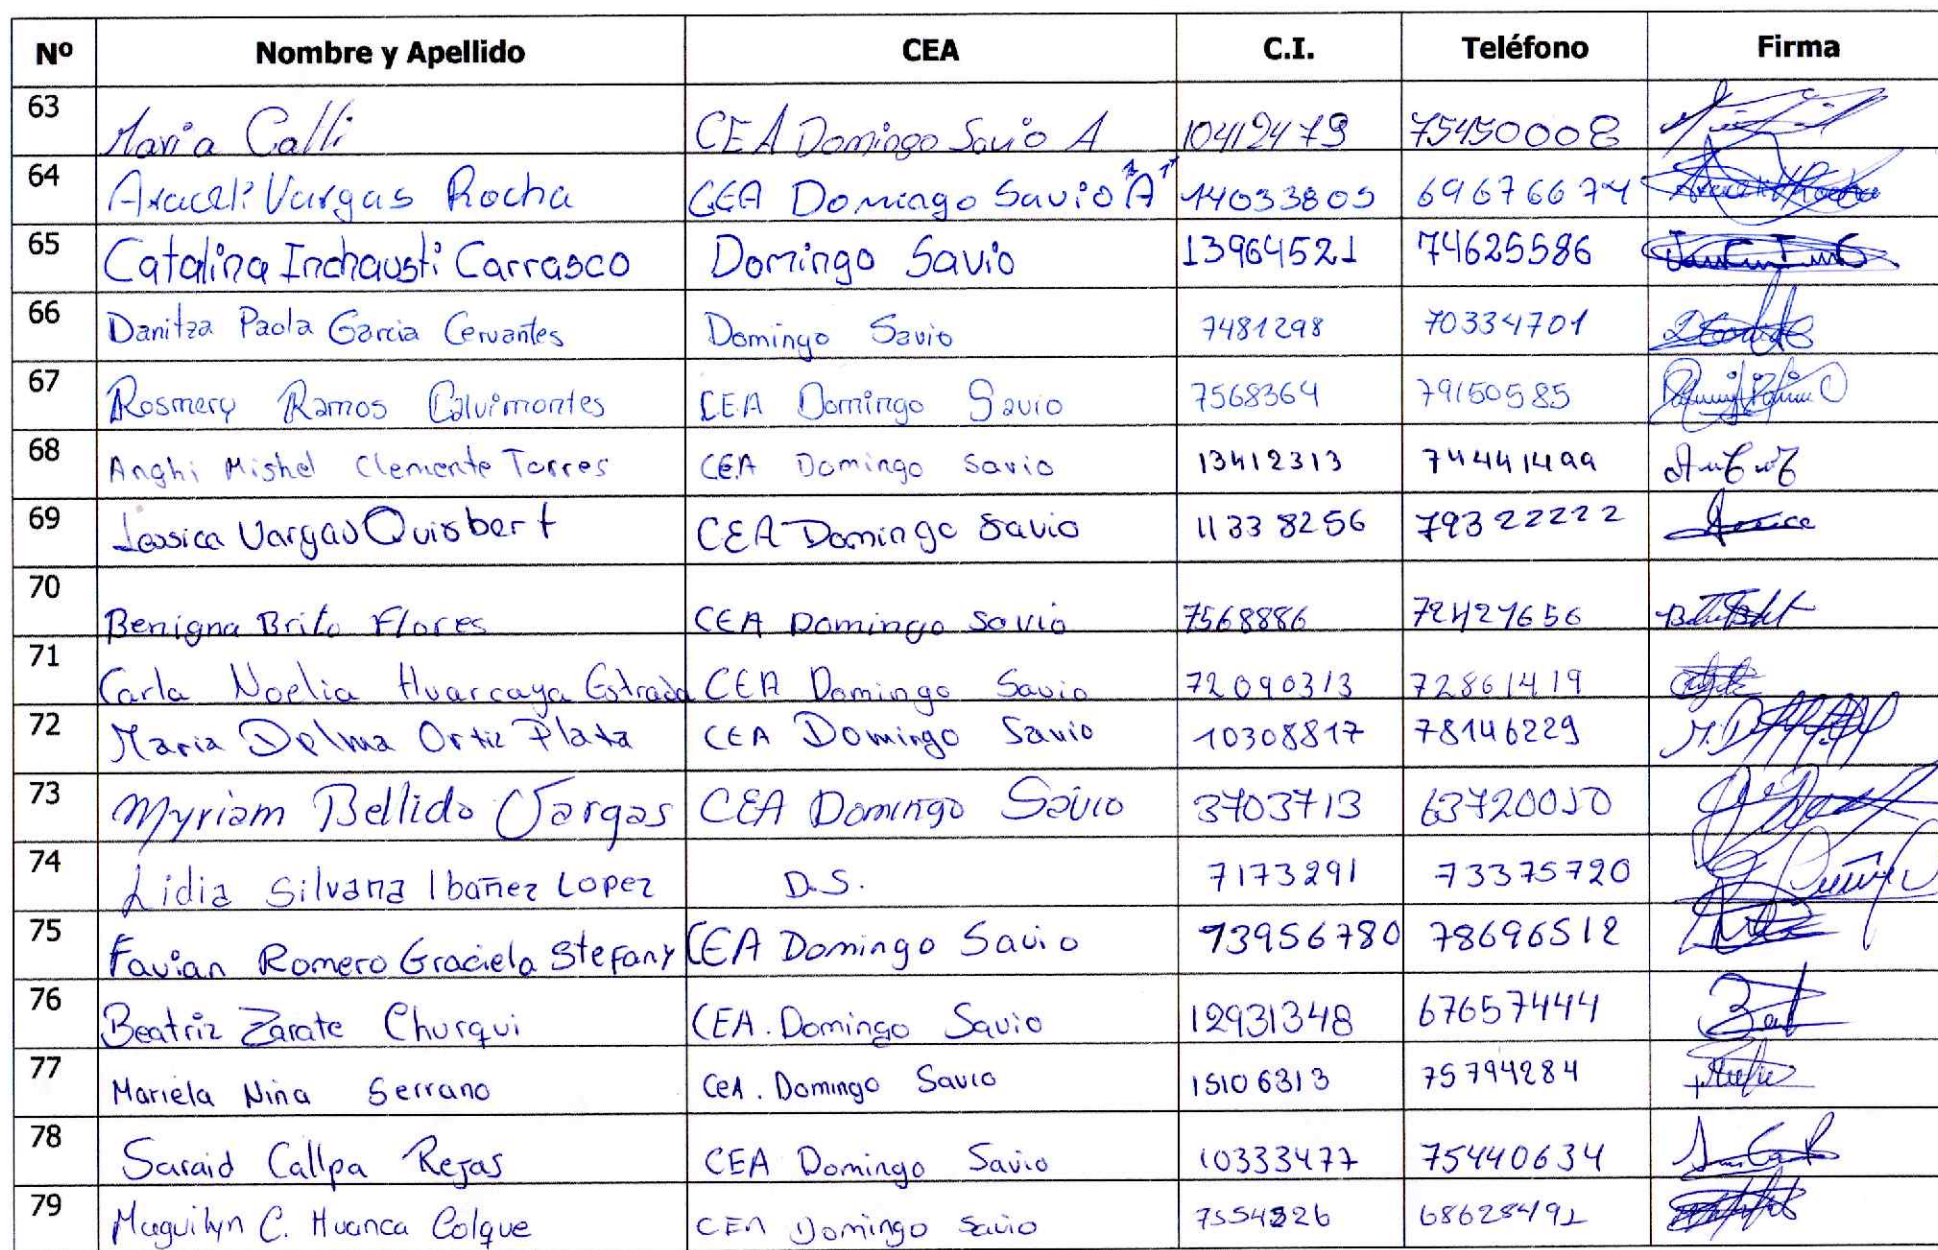 Nº Nombre y Apellido CEA C.I. Teléfono Firma
63 Maria Calli CEA Domingo Savio A 10412479 75450008
64 Araceli Vargas Rocha CEA Domingo Savio "A" 14033805 69676674
65 Catalina Inchausti Carrasco Domingo Savio 13964521 74625586
66 Danitza Paola Garcia Cervantes Domingo Savio 7481298 70334701
67 Rosmery Ramos Calvimontes CEA Domingo Savio 7568364 79150585
68 Anghi Mishel Clemente Torres CEA Domingo Savio 13412313 74441499
69 Jessica Vargas Quisbert CEA Domingo Savio 11338256 79322222
70 Benigna Brito Flores CEA Domingo Savio 7568886 72427656
71 Carla Noelia Huarcaya Estrada CEA Domingo Savio 72090313 72861419
72 Maria Delma Ortiz Plata CEA Domingo Savio 10308817 78146229
73 Myriam Bellido Vargas CEA Domingo Savio 3703713 63720050
74 Lidia Silvana Ibañez Lopez D.S. 7173291 73375720
75 Favian Romero Graciela Stefany CEA Domingo Savio 13956780 78696512
76 Beatriz Zarate Churqui CEA. Domingo Savio 12931348 67657444
77 Mariela Nina Serrano CeA. Domingo Savio 15106313 75794284
78 Saraid Callpa Rejas CEA Domingo Savio 10333477 75440634
79 Maguilyn C. Huanca Colque CEA Domingo Savio 7554326 68628492